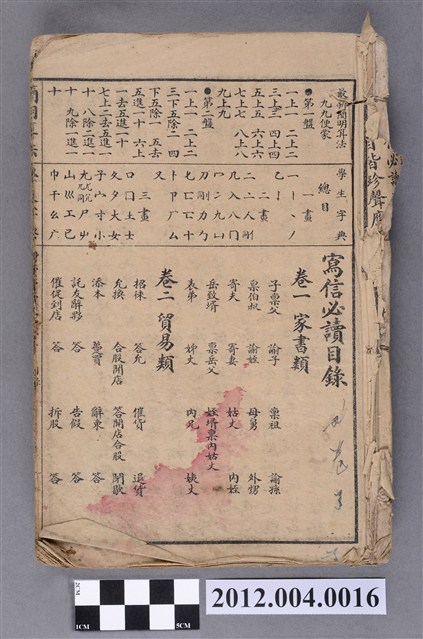 敬新簡明算法
九九便蒙
●第一盤
一上一 二上二
三上三 四上四
五上五 六上六
七上七 八上八
九上九
●第二盤
一上一 二上二
三下五除二 四
下五除一 五去
五進一十 六上
一去五進一十
七上二去五進一
十 八除二進一
十 九除一進一
十
學生字典
總目
一畫
一丨丶丿
乙亅
二畫
二亠人刪
儿入八冂
冖冫几凵
刀刪力勹
匕匚匸十
卜卩厂厶
又
三畫
口囗士夂
夊夕大女
子宀寸小
尢尸屮
山巛工己
巾干幺广
寫信必讀目錄
卷一 家書類
子稟父 諭子 稟祖 諭孫
稟伯叔 諭姪 母舅 外甥
寄夫 寄妻 姑丈 內姪
岳致壻 稟岳父 姪壻稟內姑丈
表弟 姊丈 內兄 姨丈
卷二 貿易類
招徠 答允 催貨 退貨
允換 合股開店 答開店合股 開歇
添本 答 辭東 答
託友辭夥 答 告假 答
催促到店 答 拆股 答
1CM
2CM
5CM
2012.004.0016